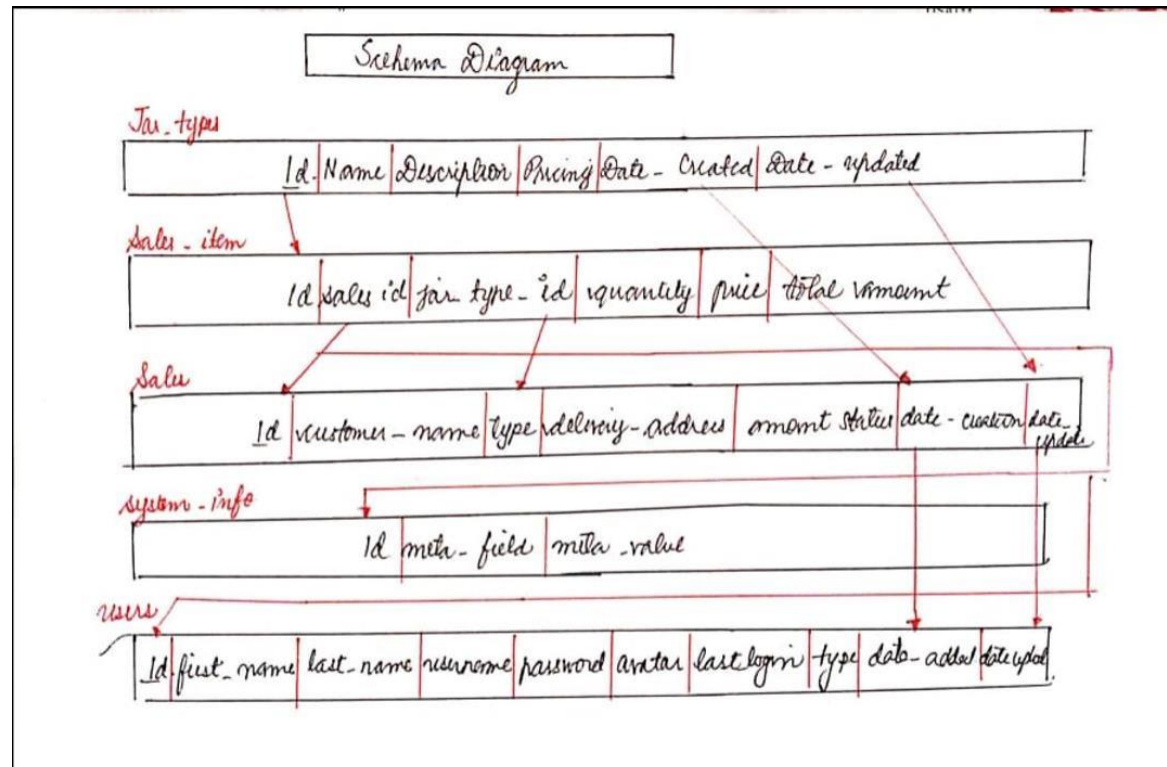 Scehema Diagram
Jar_types
Id Name Description Pricing Date - Created Date - updated
Sales - item
Id sales id jar type - id quantity price total amount
Sales
Id customer - name type delivery - address amount status date - creation date -
update
system - info
Id meta - field meta - value
users
Id first_name last_name username password avatar last login type date - added date updat